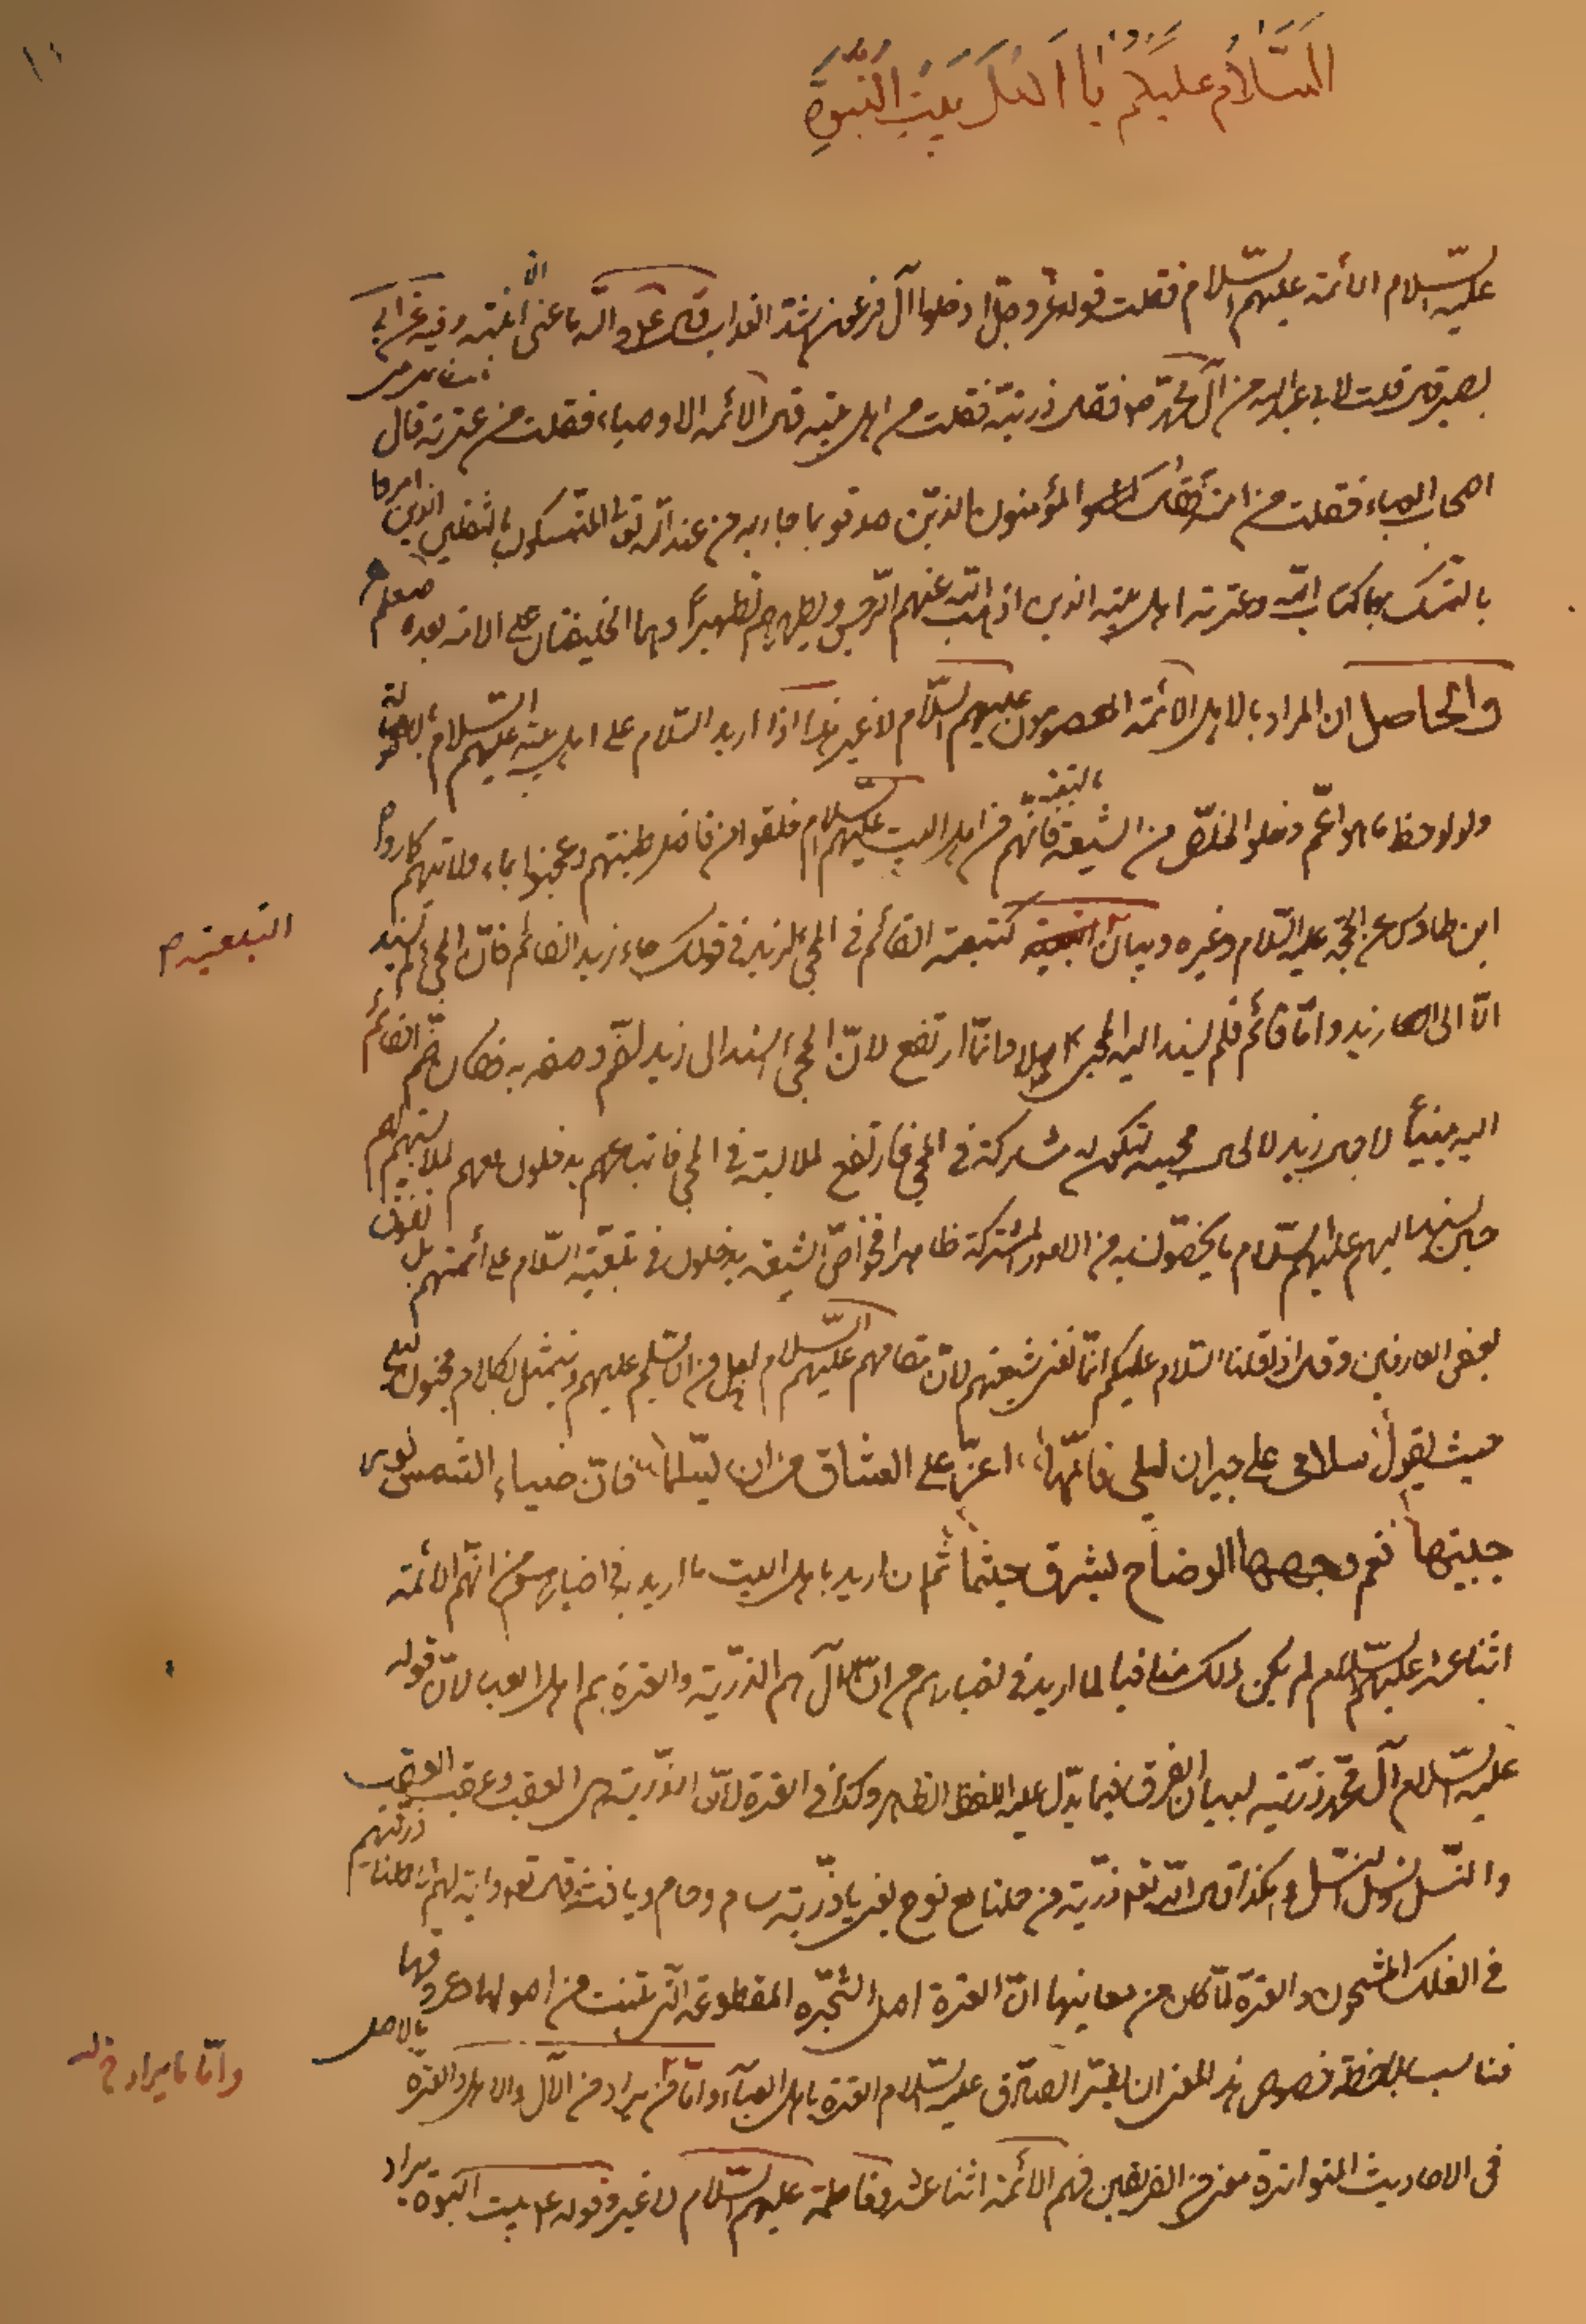 ١١
اَلسَّلامُ عَلَيْكُمْ يا اَهْلَ بَيْتِ النُّبُوَّةِ
عليه السّلام الأئمة عليهم السّلام فقلت قوله عزّ وجلّ ادخلوا آل فرعون اشدّ العذاب قال والله ما عنى الّا ابنته وفيه عن ابي
بصير قال قلت لابي عبدالله من آل محمّد ص فقال ذريّته فقلت من اهل بيته قال الأئمه الاوصياء فقلت من عترته قال
اصحاب العباء فقلت من امته فقال المؤمنون الذين صدقوا بما جاء به من عند الله تعالى المتمسكون بالثقلين الذين امروا
بالتمسّك بهما كتاب الله وعترته اهل بيته الذين اذهب الله عنهم الرّجس وطهرهم تطهيراً وهما الخليفتان على الامة بعده
والحاصل ان المراد بالاهل الأئمّة المعصومون عليهم السّلام لا غير هذا اذا اريد السّلام على اهل بيته عليهم السّلام بالاصالة
ولو لوحظ ما هو اعمّ دخلوا الخلّص من الشيعة بالتبعية فانّهم من اهل البيت عليهم السّلام خلقوا من فاضل طينتهم وعجنوا بماء ولايتهم كما رواه
ابن طاوس عن الحجّة عليه السّلام وغيره وبيان التبعية كتبعية القائم في المجيء لزيد في قولك جاء زيد القائم فانّ المجيء لم يسند
التبعية ص
الّا الى زيد وامّا قائم فلم يسند اليه المجيء اصلا وانّما ارتفع لانّ المجيء اسند الى زيد لقّم وصفه به فكان ضمّ القائم
اليه مبنيّاً لا جاء زيد لا لحال مجيئه لتكون له مشاركة في المجيء فارتفع لملابسته في المجيء فاتباعهم يدخلون معهم لملابستهم لهم
حين يسند اليهم عليهم السّلام ما يختصّون به من الامور المشتركة ظاهرا فخواصّ الشيعة يدخلون في تبعيّة السّلام على أئمتهم بل
بعض العارفين وقال اذا قلنا السّلام عليكم انّما نعني شيعتهم لانّ مقامهم عليهم السّلام اجل من ان نسلّم عليهم ونتمثل بكلام مجنون ليلى
حيث يقول سلامي على جيران ليلى فانّها اعزّ على العشاق من ان يسلّما فانّ ضياء الشمس نور
جبينها نعم وجهها الوضاح يشرق حيثما ثم ان اريد باهل البيت ما اريد به في اخبارهم من انّهم الأئمة
اثنا عشر عليهم السّلام لم يكن ذلك منافيا لما اريد في اخبارهم من انّ الآل هم الذرّية والعترة هم اهل العباء لانّ قوله
عليه السّلام آل محمّد ذرّيّته لبيان الفرق فيما يدّل عليه اللفظ الظاهر وكذا في العترة لانّ الذرّية هي العقب وعقب العقب
والنّسل ونسل النّسل وهكذا قال الله تعالى ذرّية من حملنا مع نوح يعني يا ذرّية سام وحام ويافث وقال تعالى وآية لهم انّا حملنا ذريّتهم
في الفلك المشحون والعترة لمّا كان من معانيها انّ العترة اصل الشّجرة المقطوعة التي تنبت من اصولها وعروقها
فناسب بملاحظة خصوص هذا المعنى ان يفسّر الصّادق عليه السّلام العترة باهل العبآء وامّا ما يراد من الآل والاهل والعترة
وامّا ما يراد
في الاحاديث المتواترة معنى من الفريقين فهم الأئمّة اثنا عشر وفاطمة عليهم السّلام لا غير وقوله ع بيت النّبوة يراد